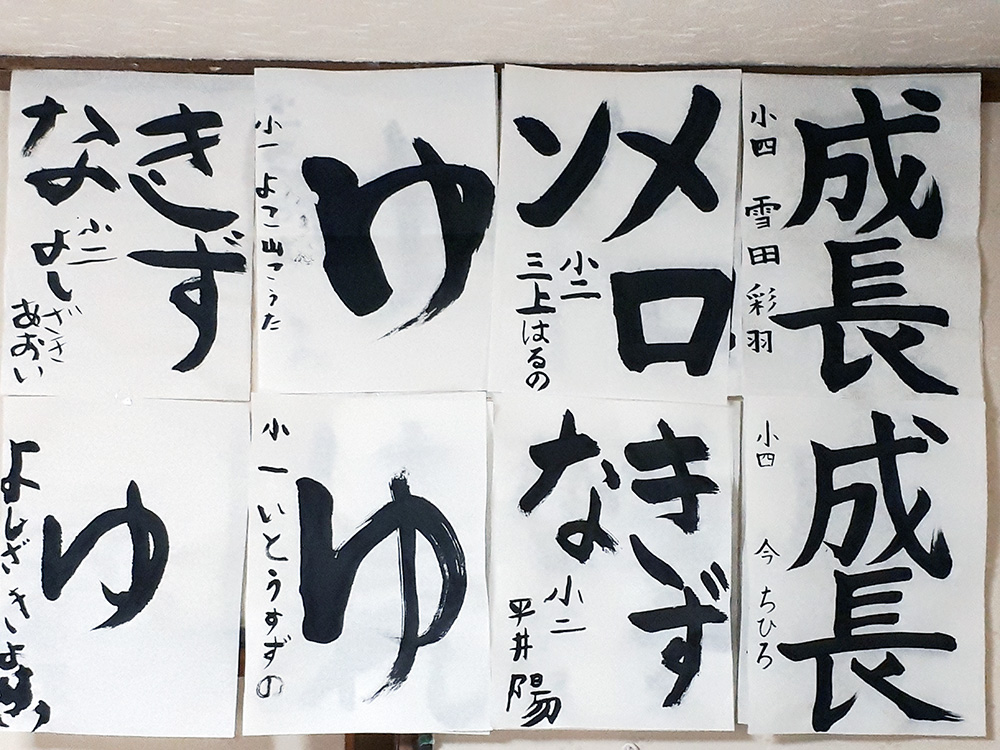 成長
小四 雪田 彩羽
メロ
ン
小二
三上はるの
ゆ
小一 よこ山こうた
きず
な
小二
よしざき
あおい
成長
小四 今 ちひろ
きず
な
小二
平井 陽
ゆ
小一 いとうすずの
ゆ
よしざき